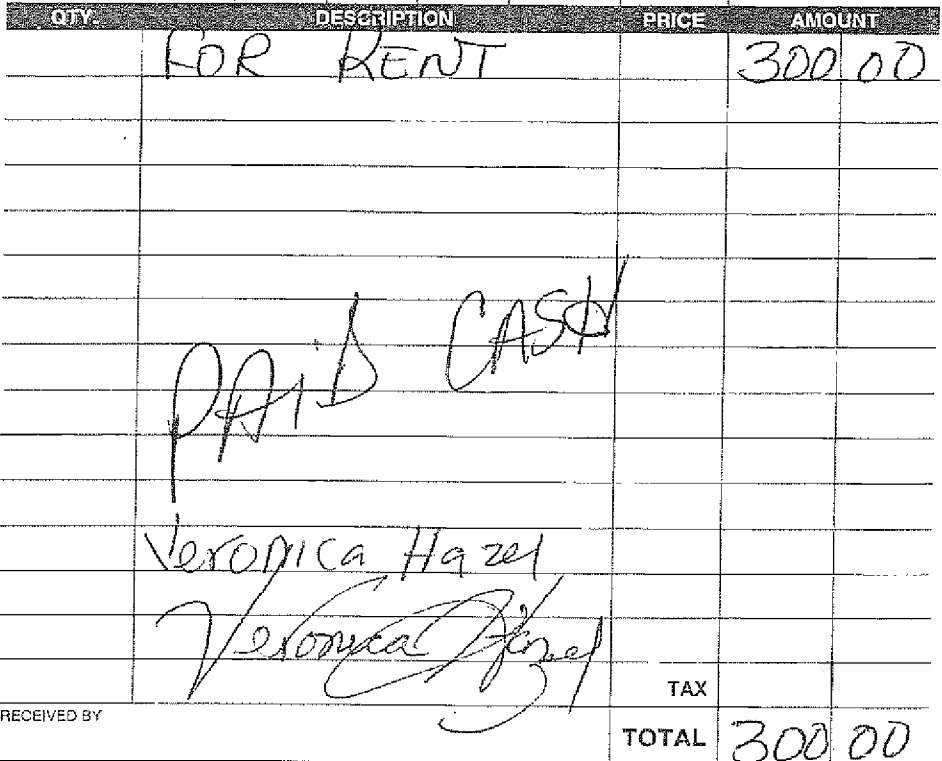 QTY. DESCRIPTION PRICE AMOUNT
FOR RENT 300 00
PAID CASH
Veronica Hazel
Veronica Hazel
TAX
RECEIVED BY
TOTAL 300 00